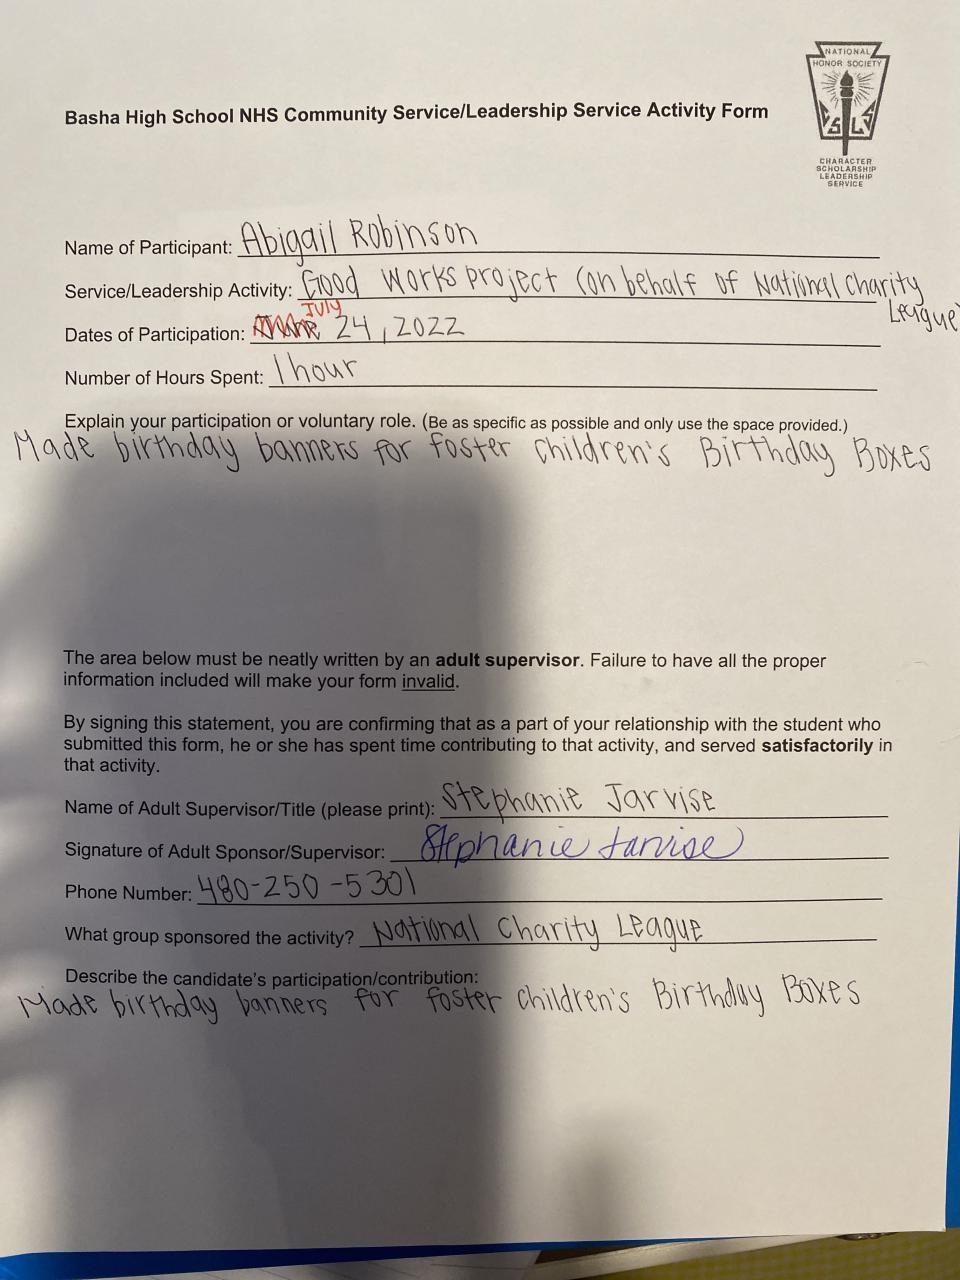 NATIONAL
HONOR SOCIETY
S L S
CHARACTER
SCHOLARSHIP
LEADERSHIP
SERVICE
Basha High School NHS Community Service/Leadership Service Activity Form
Name of Participant: Abigail Robinson
Service/Leadership Activity: Good Works project (on behalf of National Charity
League)
JULY
Dates of Participation: June 24, 2022
Number of Hours Spent: 1 hour
Explain your participation or voluntary role. (Be as specific as possible and only use the space provided.)
Made birthday banners for foster children's Birthday Boxes
The area below must be neatly written by an adult supervisor. Failure to have all the proper
information included will make your form invalid.
By signing this statement, you are confirming that as a part of your relationship with the student who
submitted this form, he or she has spent time contributing to that activity, and served satisfactorily in
that activity.
Name of Adult Supervisor/Title (please print): Stephanie Jarvise
Signature of Adult Sponsor/Supervisor: Stephanie Jarvise
Phone Number: 480-250-5301
What group sponsored the activity? National Charity League
Describe the candidate's participation/contribution:
Made birthday banners for foster children's Birthday Boxes